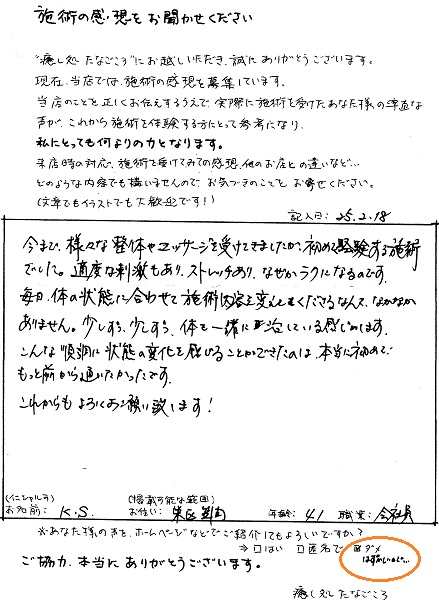 施術の感想をお聞かせください
"癒し処たなごころ"にお越しいただき、誠にありがとうございます。
現在、当店では、施術の感想を募集しています。
当店のことを正しくお伝えするうえで、実際に施術を受けたあなた様の率直な
声が、これから施術を体験する方にとって参考になり、
私にとっても何よりの力となります。
来店時の対応、施術を受けてみての感想、他のお店との違いなど…
どのような内容でも構いませんので、お気づきのことをお寄せください。
(文章でもイラストでも大歓迎です!)
記入日: 25.2.18
今まで、様々な整体やマッサージを受けてきましたが、初めて経験する施術
でした。適度な刺激もあり、ストレッチあり、なぜかラクになるのです。
毎回、体の状態に合わせて施術内容を変えてくださるなんて、なかなか
ありません。少しずつ、少しずつ、体と一緒に治している感じがします。
こんな順調に状態の変化を感じることができたのは、本当に初めて。
もっと前から通いたかったです。
これからもよろしくお願い致します!
(イニシャル可) (掲載可能な範囲)
お名前: K.S. お住い: 年齢: 41 職業: 会社員
※あなた様の声を、ホームページなどでご紹介してもよろしいですか?
⇒ □はい □匿名で ☑ダメ
はずかしいので…
ご協力、本当にありがとうございます。
癒し処たなごころ